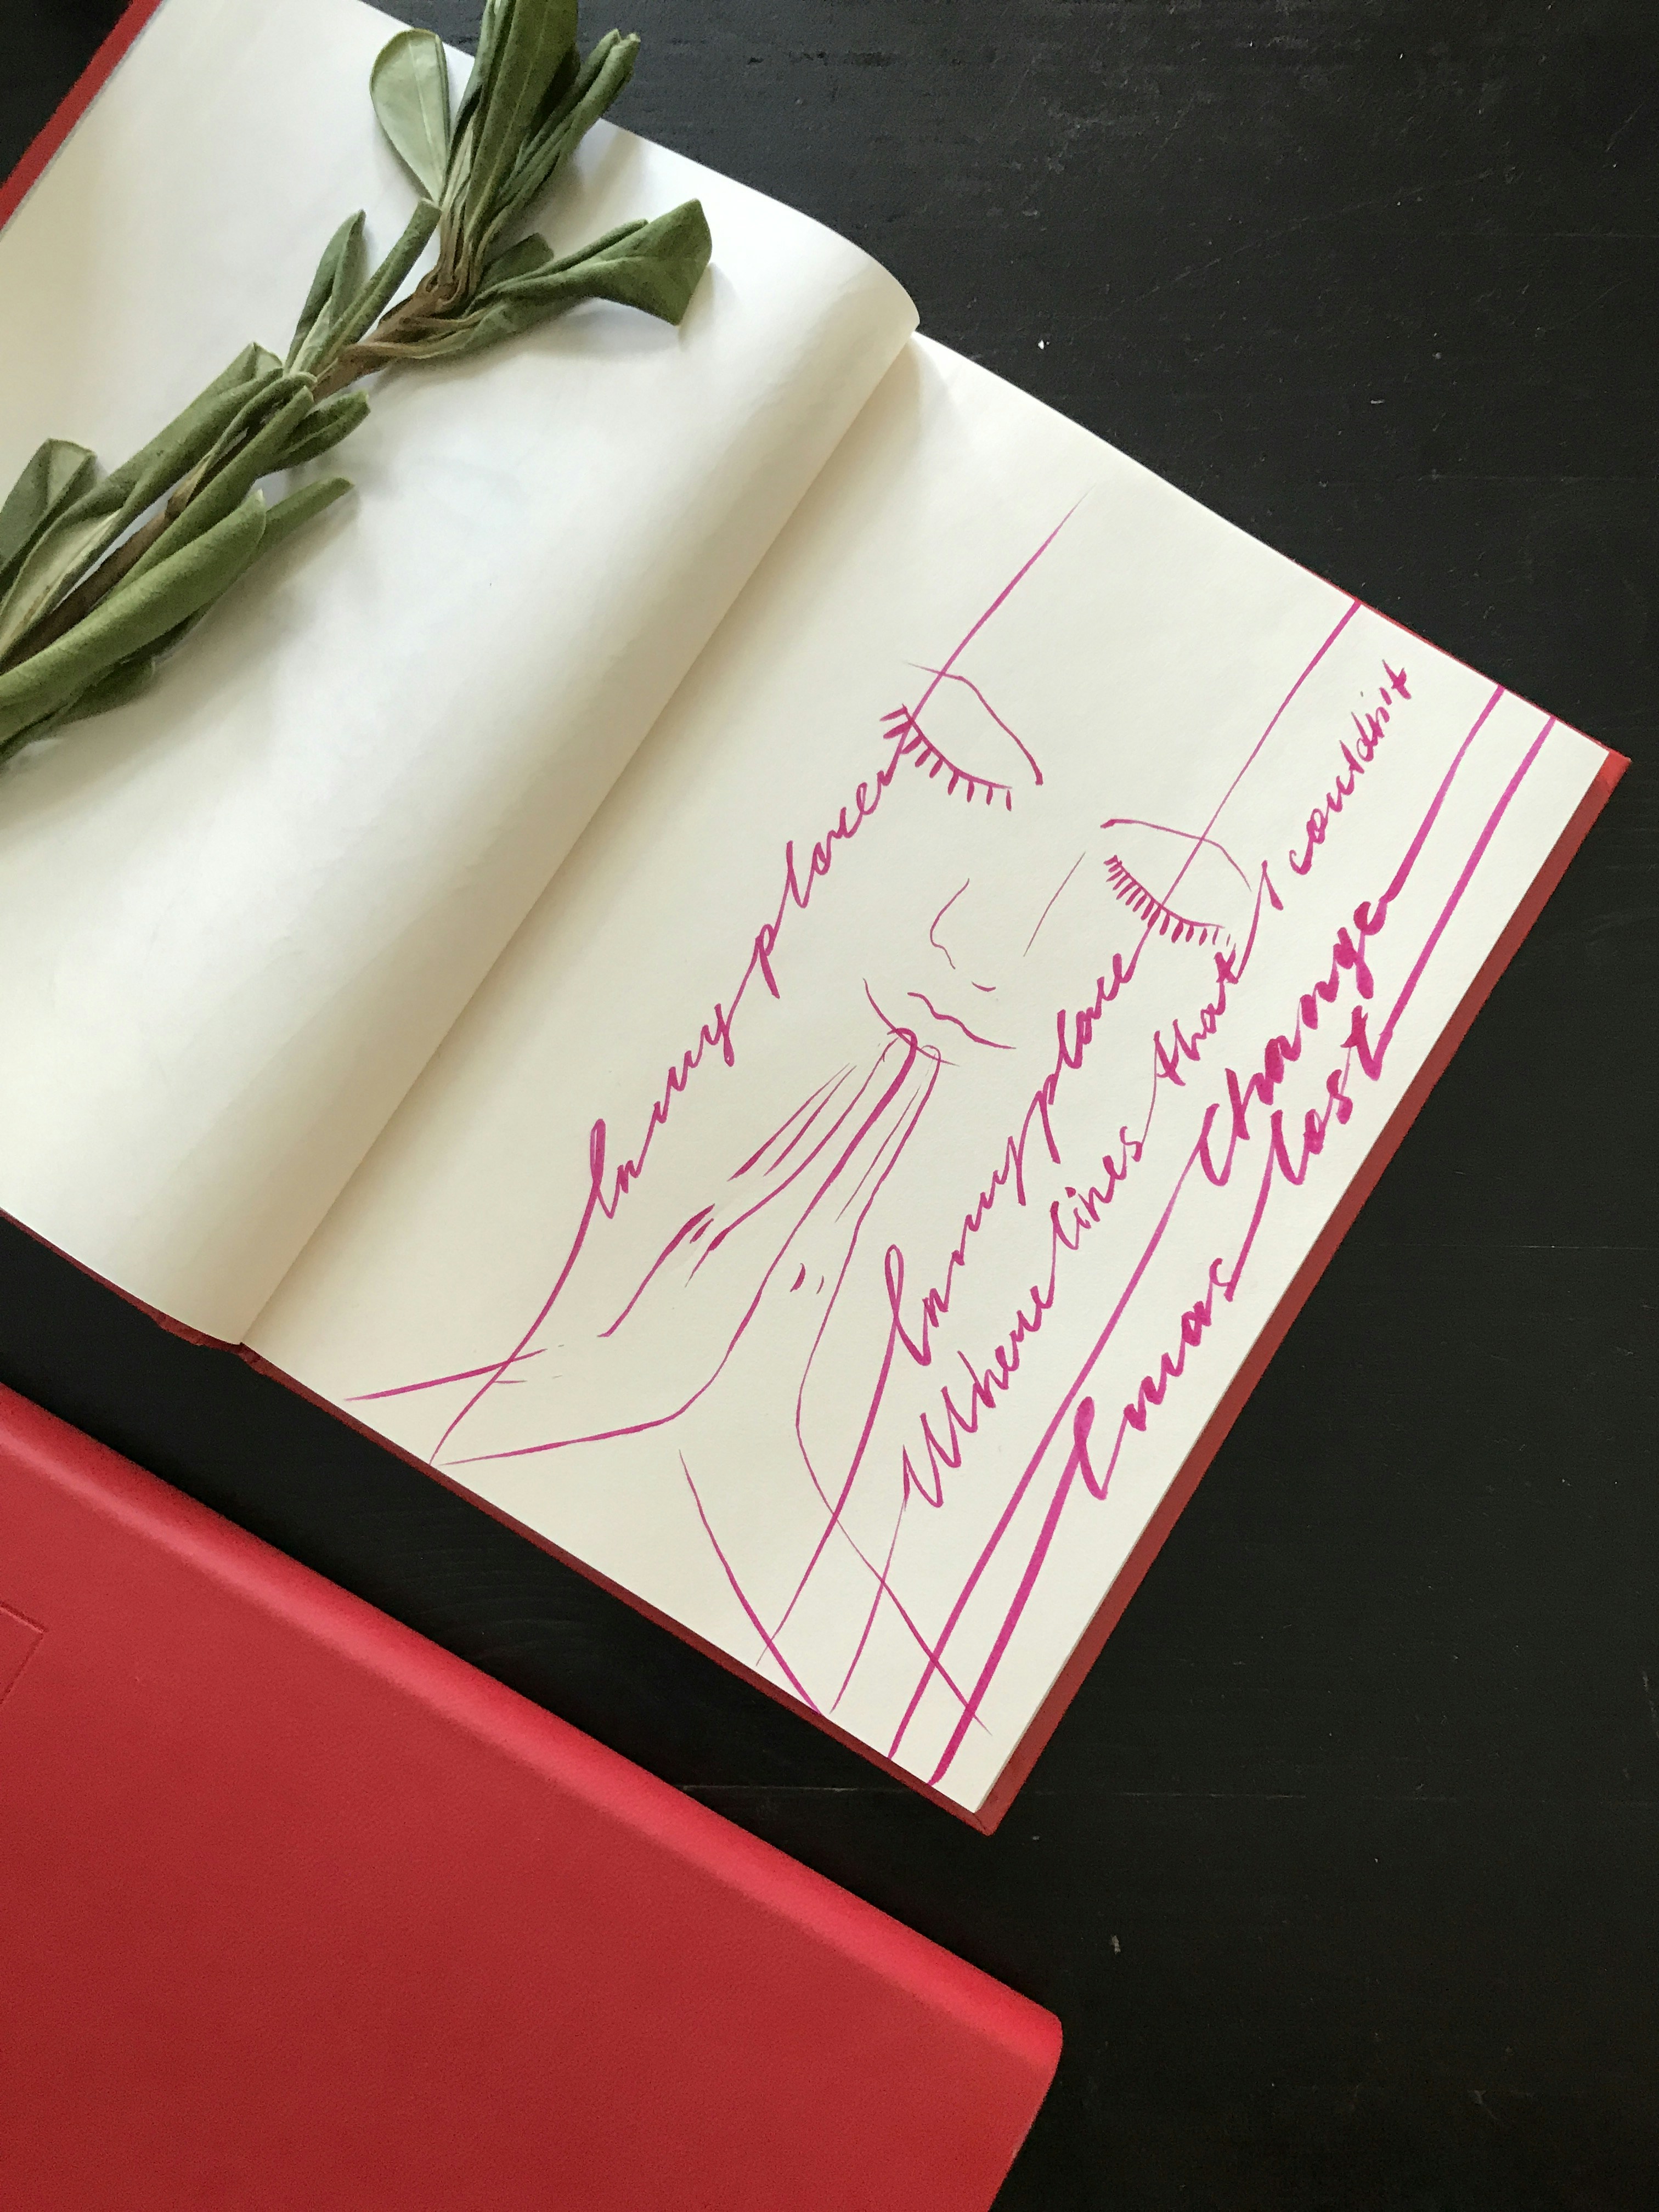 In my place
In my place
Where lines that I couldn't
change
I was lost